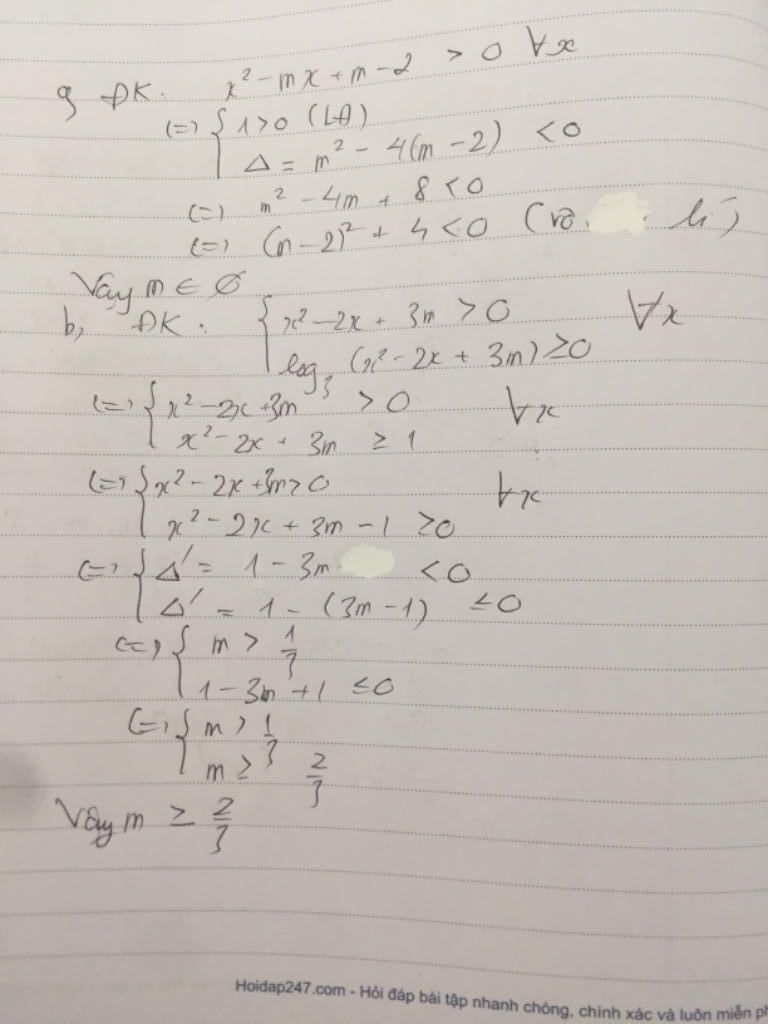 a, ĐK: x² - mx + m - 2 > 0 ∀x
(=) { 1 > 0 (LĐ)
Δ = m² - 4(m - 2) < 0
(=) m² - 4m + 8 < 0
(=) (m - 2)² + 4 < 0 (vô lí)
Vậy m ∈ ∅
b, ĐK: { x² - 2x + 3m > 0 ∀x
log₃ (x² - 2x + 3m) ≥ 0
(=) { x² - 2x + 3m > 0 ∀x
x² - 2x + 3m ≥ 1
(=) { x² - 2x + 3m > 0 ∀x
x² - 2x + 3m - 1 ≥ 0
(=) { Δ' = 1 - 3m < 0
Δ' = 1 - (3m - 1) ≤ 0
(=) { m > 1/3
1 - 3m + 1 ≤ 0
(=) { m > 1/3
m ≥ 2/3
Vậy m ≥ 2/3
Hoidap247.com - Hỏi đáp bài tập nhanh chóng, chính xác và luôn miễn ph